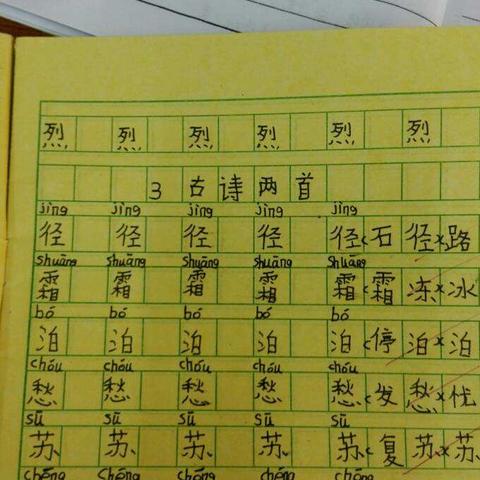 烈 烈 烈 烈 烈 烈
3 古诗两首
jìng jìng jìng jìng jìng
径 径 径 径 径<石径×路
shuāng shuāng shuāng shuāng shuāng
霜 霜 霜 霜 霜<霜冻×冰
bó bó bó bó bó
泊 泊 泊 泊 泊<停泊×泊
chóu chóu chóu chóu chóu
愁 愁 愁 愁 愁<发愁×忧
sū sū sū sū sū
苏 苏 苏 苏 苏<复苏×苏